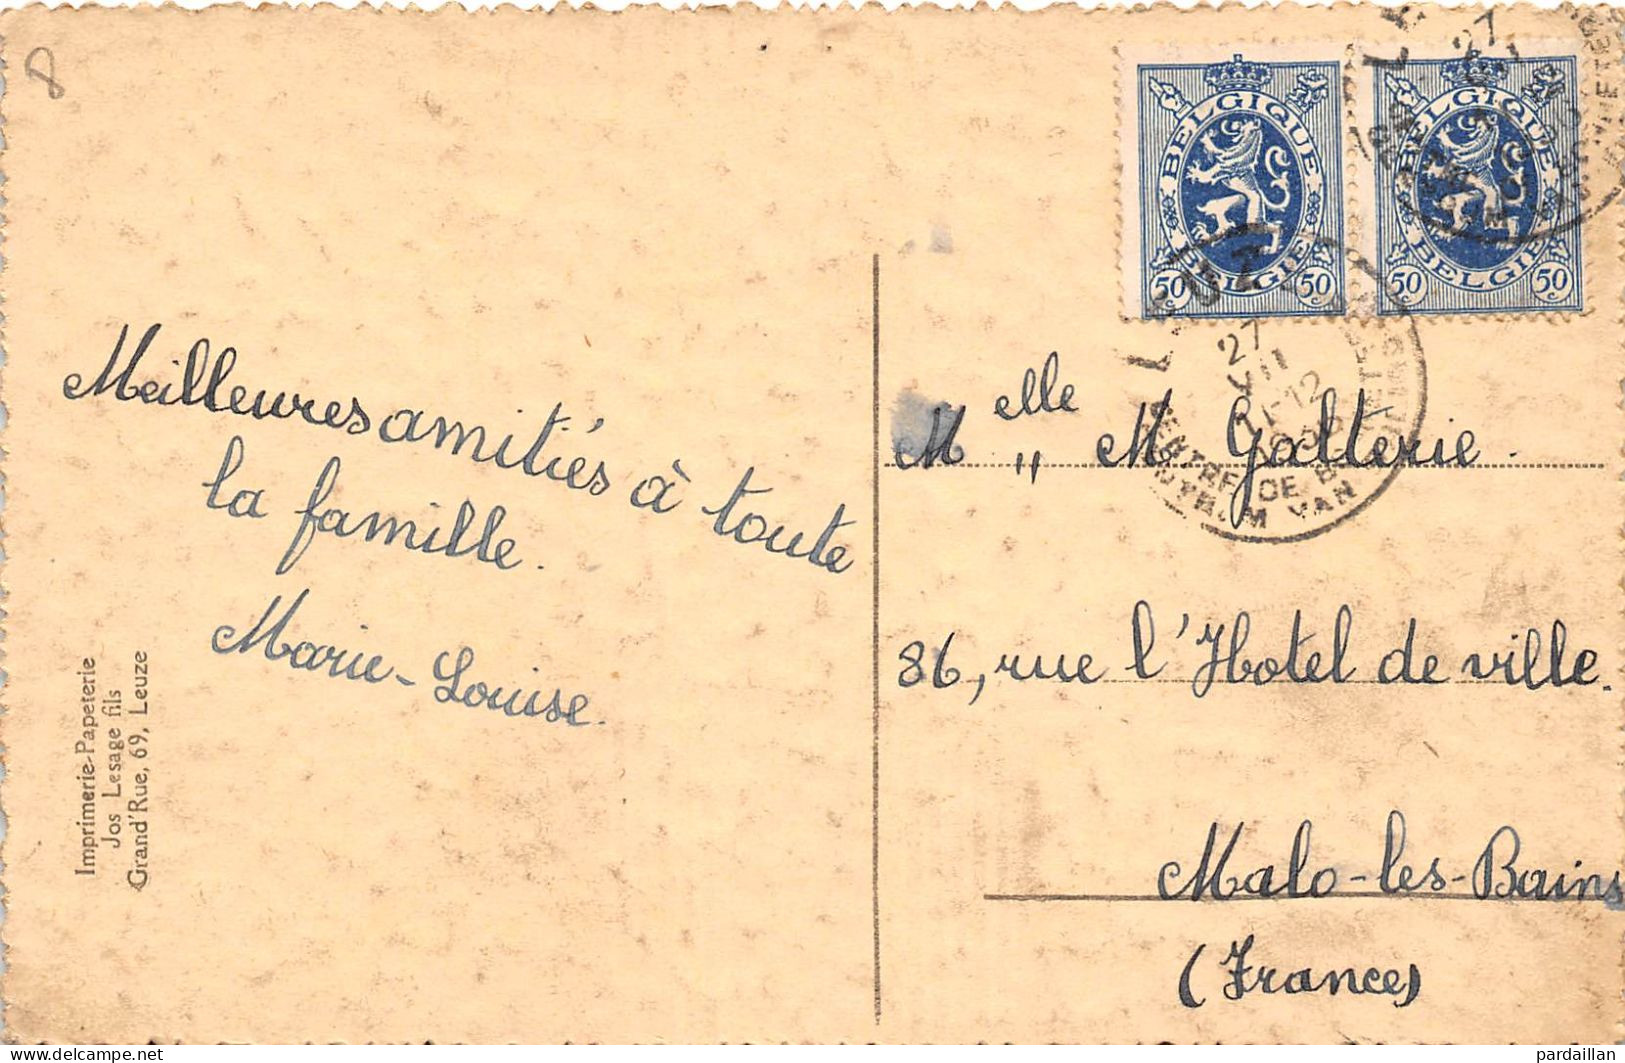 8
Meilleures amitiés à toute
la famille.
Marie-Louise.
Imprimerie-Papeterie
Jos Lesage fils
Grand'Rue, 69, Leuze
BELGIQUE
BELGIE
50c 50c
BELGIQUE
BELGIE
50c 50c
27
LEUZE
27
VII
11-12
CENTRE DE
CENTRUM VAN
Melle M Galterie.
86, rue l'Hotel de ville.
Malo-les-Bains
(France)
www.delcampe.net
pardaillan